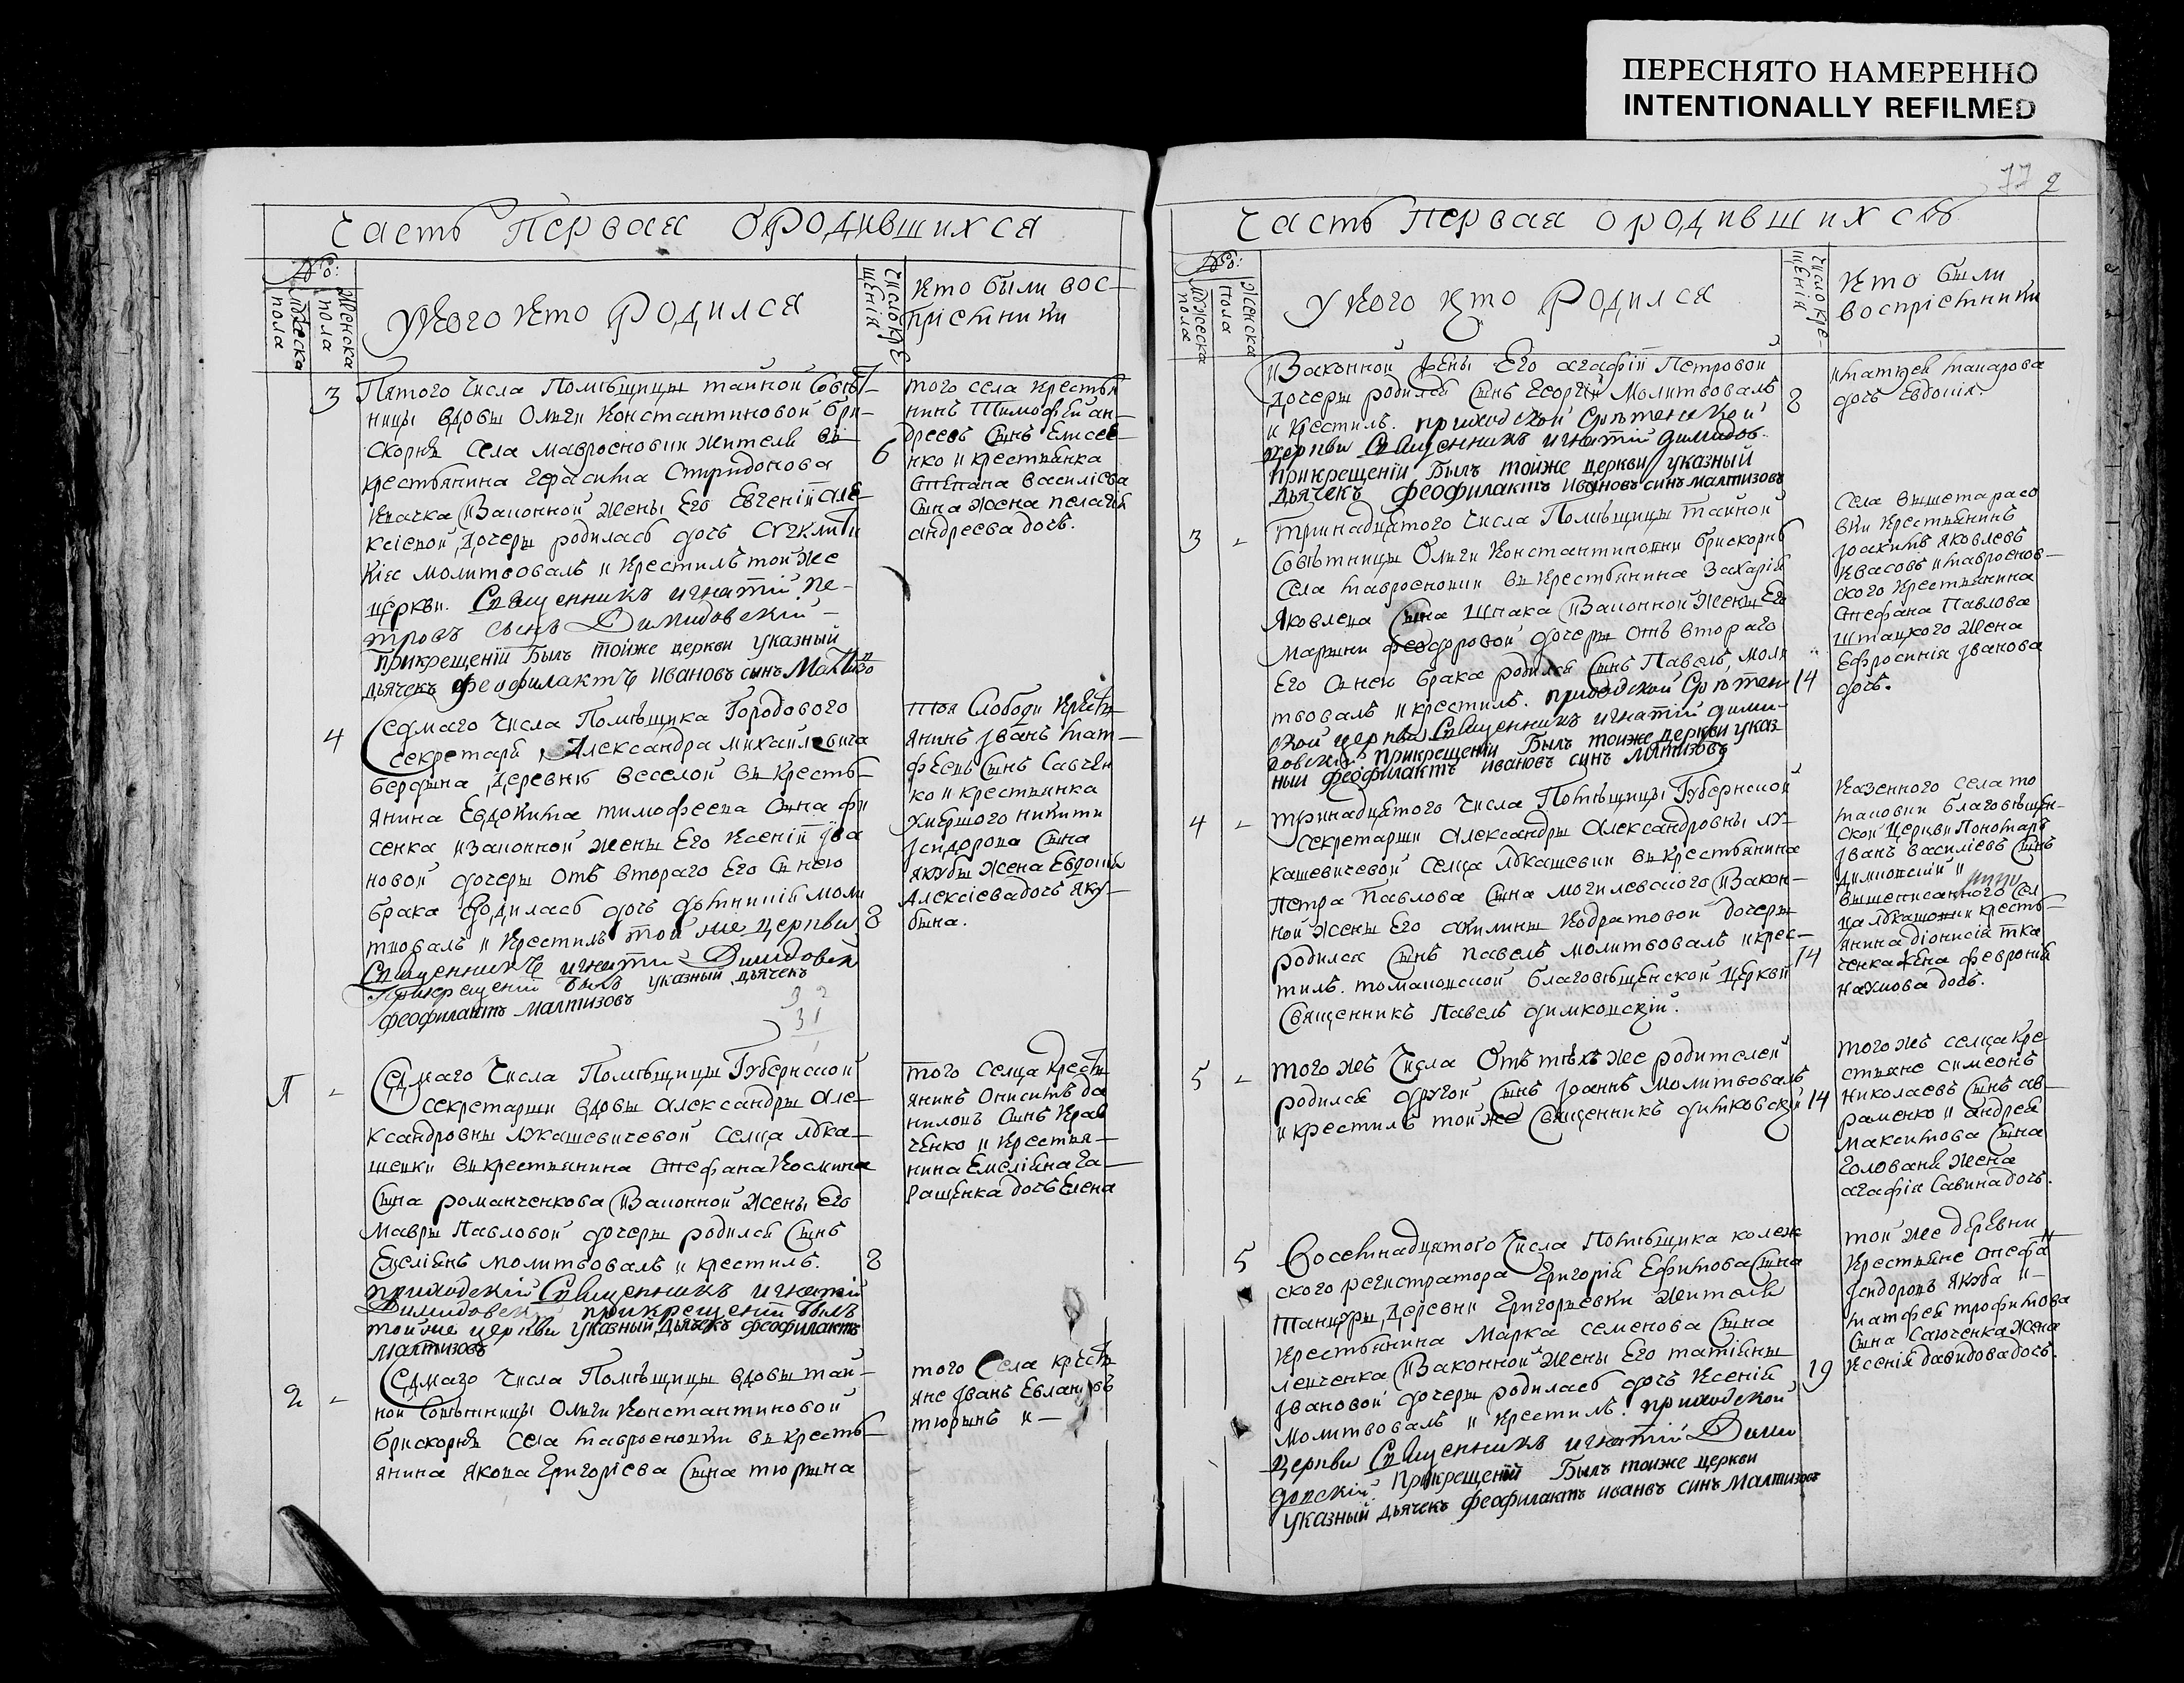 ПЕРЕСНЯТО НАМЕРЕННО
INTENTIONALLY REFILMED
Часть Первая ородившихся
№го:
Мужеска пола
Женска пола
Укого кто Родился
Число крещенія
Кто были вос-
пріемники
3
Пятого Числа Помѣщицы тайной Совѣт-
ницы вдовы Олги Константиновой Бри-
скорнѣ села Мавроеновки жителя
крестьянина Герасима Спиридонова
Законной жены Его Евгеніи Але-
ксіевой дочеры родилась дочь
молитвовалъ и крестилъ той же
церкви. Священникъ игнатій Пе-
тровъ сынъ Димидовскій
Прикрещеніи Былъ тойже церкви указный
дьячекъ феофилактъ ивановъ синъ
6
того села крестья
нинъ Тимофей ан-
дреевъ Сынъ Елисее-
нко и крестьянка
Степана василіева
Сына Жена пелагія
андреева дочь.
4
Седмаго Числа Помѣщика Городового
секретаря Александра михайловича
Деревнѣ веселой вн Кресть-
янина Евдокима тимофеева Сына
сенка изаконной жены Его Ксеніи Ива
новой дочеры отъ втораго Его Снею
брака Родилась дочь моли
твовалъ и Крестилъ той же церкви
Священникъ игнатій Димидовск
Прикрещеніи былъ указный дьячекъ
феофилактъ малтизовъ
8
Слободи Крест
янинъ Іванъ мат-
феевъ Сынъ Савчен
ко и крестянка
умершого никити
Ісидорова Сына
якубы жена Евдокія
Алексіева дочь яку-
бына.
32
31
1
Седмаго Числа Помѣщицы Губернской
секретарши вдовы Александры Але-
ксандровны лукашевичевой селца лука-
шевки вн крестянина стефана Космина
Сына романченкова изаконной жены его
Мавры Павловой дочеры родился Сынъ
Емеліянъ молитвовалъ и крестилъ.
приходскій Священникъ игнатій
Димидовскі прикрещеніи былъ
тойже церкви указный дьячекъ феофилактъ
Малтизовъ
8
того Селца Крест
янинъ Онисимъ да
ниловъ Сынъ Крав
ченко и Крестья-
нина Емеліяна Га-
ращенка дочь Елена
2
Седмаго Числа Помѣщицы вдовы тай-
ной Совѣтницы Олги Константиновой
брискорнѣ села мавроеновки вн Кресть-
янина якова Григоріева Сына тюрына
того Села крестя
яне Іванъ
тюрынъ и
77 2
Часть Первая ородившихсѧ
№го:
Мужеска пола
Женска пола
Укого кто Родился
Число крещенія
Кто были
воспріемники
изаконной жены Его агафіи Петровой
дочеры родился Сынъ Георгій Молитвовалъ
и крестилъ. приходской Срѣтенской
церкви Священникъ игнатій димидов.
прикрещеніи Былъ тойже церкви указный
дьячекъ феофилактъ ивановъ синъ малтизовъ
8
и матфея макарова
дочь Евдокія.
3
Тринадцатого Числа Помѣщицы тайной
Совѣтницы Олги Константиновни брискорнѣ
Села мавроеновки вн Крестьянина Захарія
Яковлева Сына Шпака изаконной жены Его
Марыны феодоровой дочеры отъ втораго
Его Снею брака родился Сынъ Павелъ, моли
твовалъ и крестилъ. приходской Срѣтен
ской церкви Священникъ игнатій дими-
довскій прикрещеніи Былъ тойже церкви указ
ный феофилактъ ивановъ синъ малтизовъ
14
Села вышетарасо
вки крестьянинъ
Іоакимъ яковлевъ
квасовъ и мавроенов-
ского крестьянина
стефана Павлова
Штацкого жена
Ефросинія Іванова
дочь.
4
тринадцатого Числа Помѣщицы Губернской
Секретарши Александры Александровны лу-
кашевичевой селца лукашевки вн крестьянина
Петра Павлова Сына могилевского изакон-
ной жены Его акилины Кодратовой дочеры
родился Сынъ павелъ молитвовалъ и крес-
тилъ. томаковской благовѣщенской церкви
Священникъ Павелъ димковскій.
14
Казенного села то
маковки благовѣщен-
ской Церкви Пономаръ
Іванъ василіевъ Сынъ
димковскій и
вышеписанного сел
ца лукашевки кресть-
янина діонисія тка
ченка жена февронія
наумова дочь.
5
того жъ Числа Отъ тѣхъ же родителей
родился другой Сынъ Іоаннъ молитвовалъ
и крестилъ той же Священникъ димковскій
14
того жъ селца кре
стьяне симеонъ
Николаевъ Сынъ ав-
раменко и андрея
максимова Сына
Голованя жена
агафія Савина дочь.
5
Восемнадцатого Числа Помѣщика колеж
ского регистратора Григорія Ефимова Сына
Танцуры, Деревни Григориевки жителя
Крестьянина Марка семенова Сына
левченка изаконной жены Его татіяны
Івановой дочеры родилась дочь Ксенія
Молитвовалъ и крестилъ. приходской
церкви Священникъ игнатій Дими
довскій. Прикрещеніи Былъ тоиже церкви
указный дьячекъ феофилактъ иванвъ синъ Малтизовъ
19
той же деревни
Крестьяне стефа
Ісидоровъ якуба и-
матфея трофимова
Сына Савченка жена
Ксенія давидова дочь.